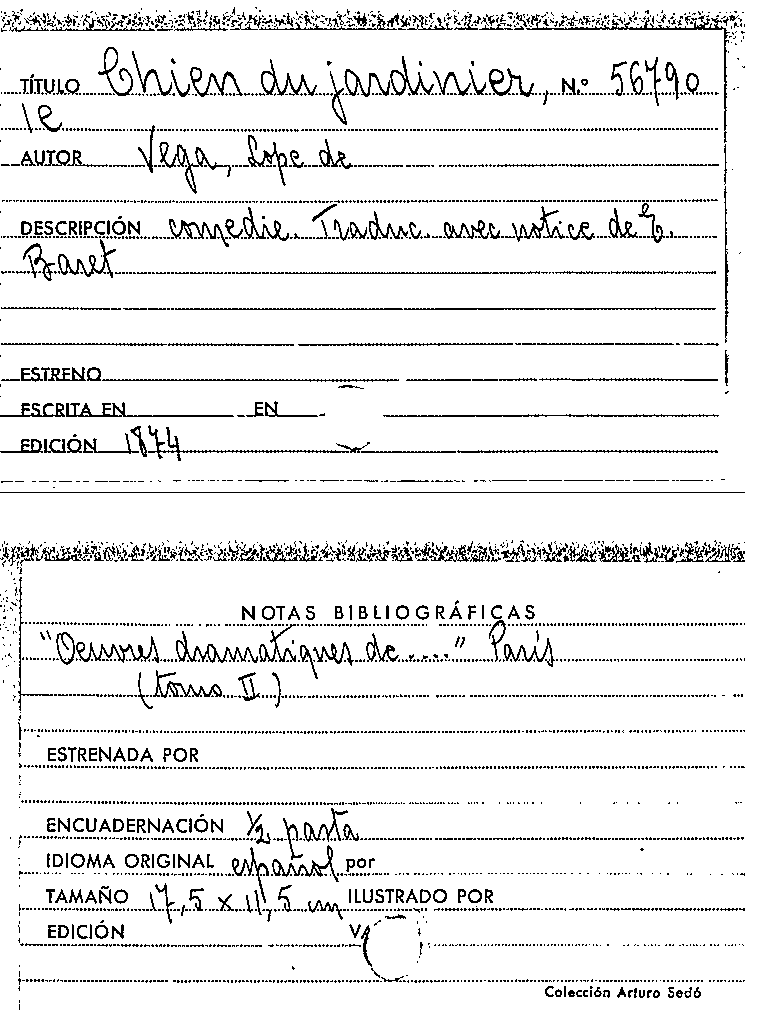 TÍTULO Chien du jardinier, N.º 56790
le
AUTOR Vega, Lope de
DESCRIPCIÓN comedie. Traduc. avec notice de E.
Baret
ESTRENO
ESCRITA EN EN
EDICIÓN 1874
NOTAS BIBLIOGRÁFICAS
"Oeuvres dramatiques de...." París
(tomo II)
ESTRENADA POR
ENCUADERNACIÓN ½ pasta
IDIOMA ORIGINAL español por
TAMAÑO 17,5 x 11,5 cm ILUSTRADO POR
EDICIÓN
Colección Arturo Sedó